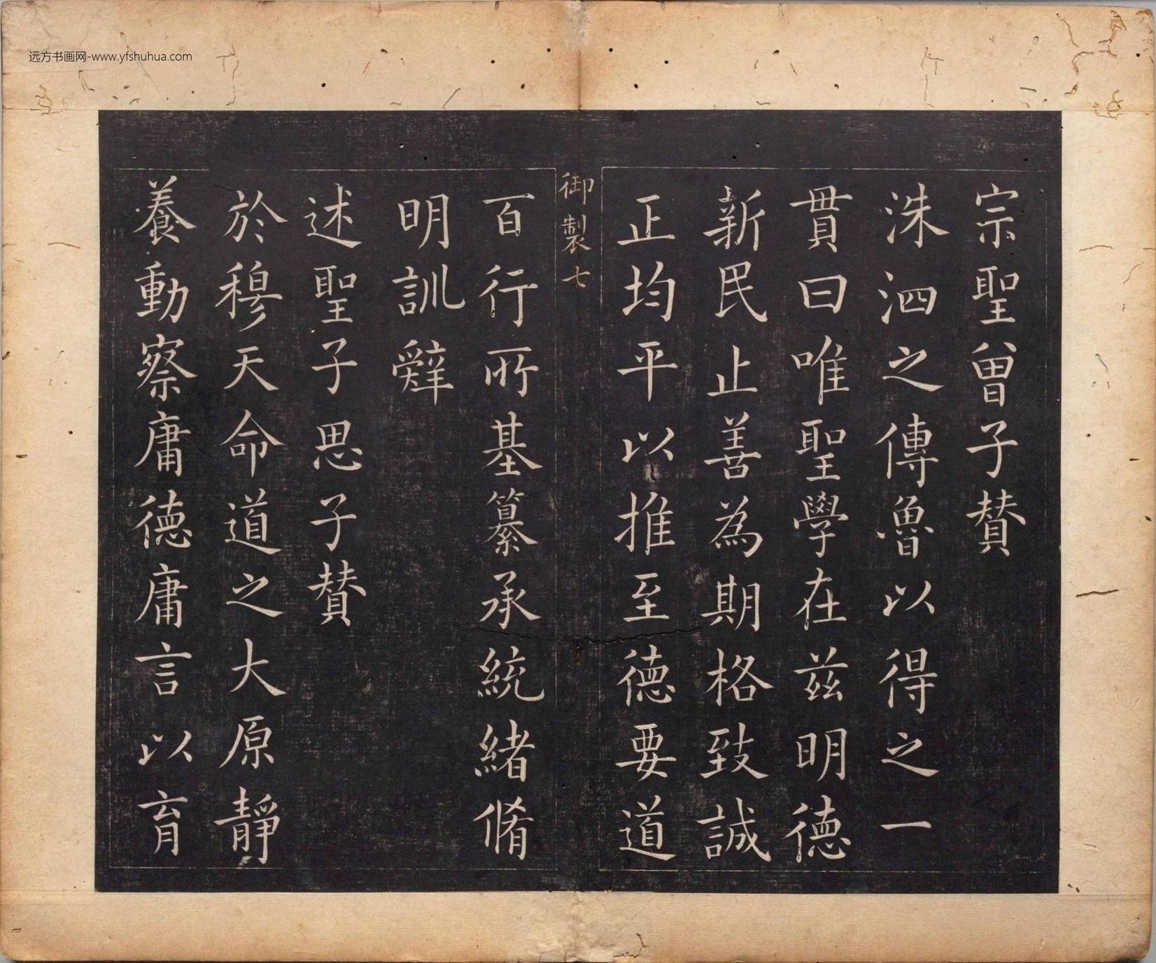 远方书画网-www.yfshuhua.com
宗聖曾子賛
洙泗之傳魯以得之一
貫曰唯聖學在茲明德
新民止善為期格致誠
正均平以推至德要道
御製七
百行所基纂承統緒脩
明訓辤
述聖子思子賛
於穆天命道之大原靜
養動察庸德庸言以育